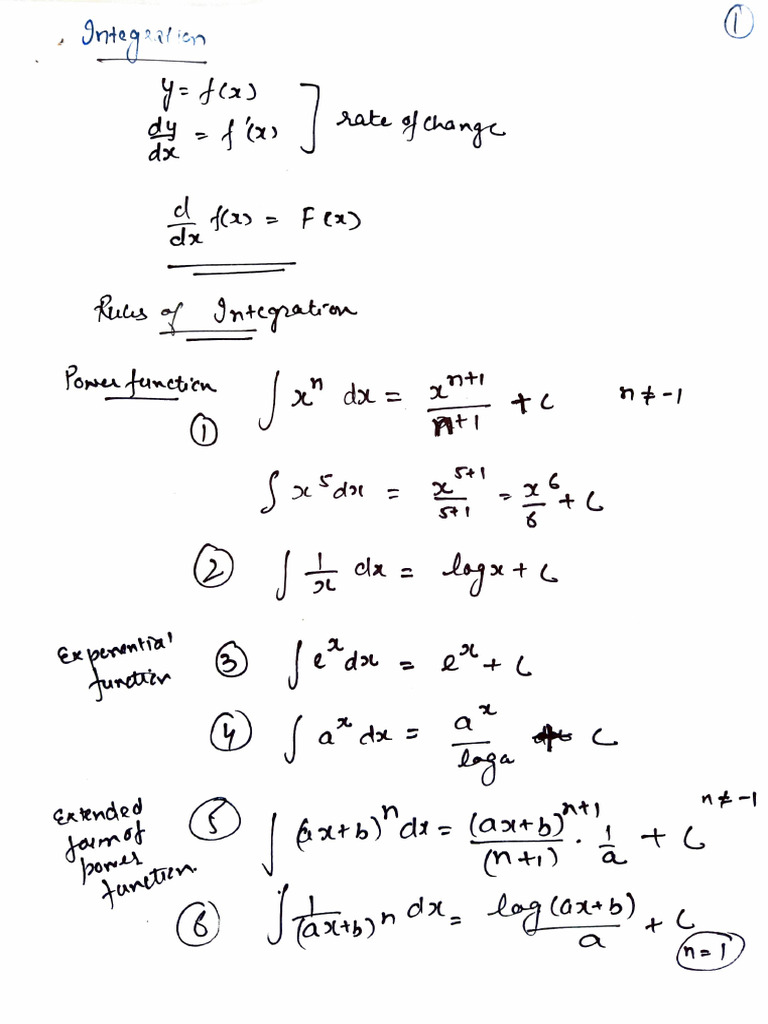 Integration
①
y = f(x)
dy/dx = f'(x) ] rate of change
d/dx f(x) = F(x)
Rules of Integration
Power function ① ∫ xⁿ dx = xⁿ⁺¹/n+1 + C n ≠ -1
∫ x⁵ dx = x⁵⁺¹/5+1 = x⁶/6 + C
② ∫ 1/x dx = log x + C
Exponential function ③ ∫ eˣ dx = eˣ + C
④ ∫ aˣ dx = aˣ/log a + C
Extended form of power function. ⑤ ∫ (ax+b)ⁿ dx = (ax+b)ⁿ⁺¹/(n+1) · 1/a + C n ≠ -1
⑥ ∫ 1/(ax+b)ⁿ dx = log(ax+b)/a + C n = 1